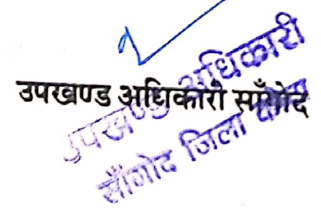 उपखण्ड अधिकारी साँगोद
उपखण्ड अधिकारी
साँगोद जिला